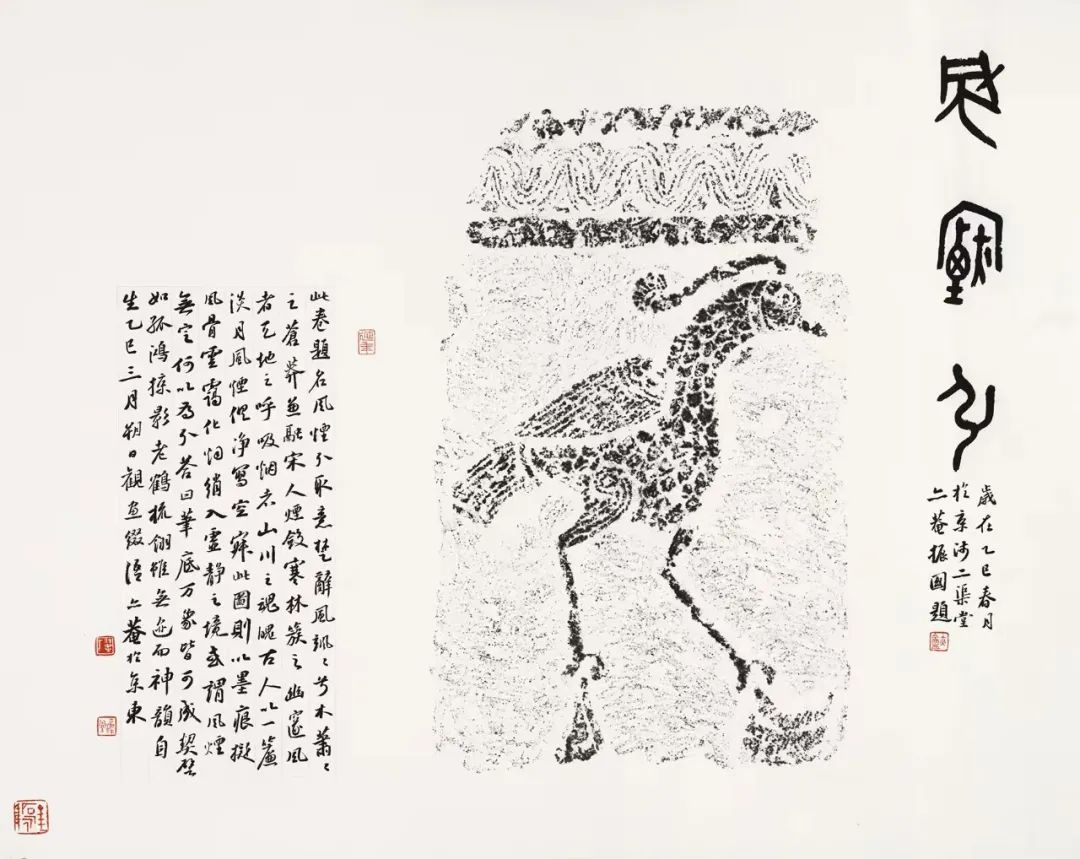 風煙兮
歲在乙巳春月
於京沛二渠堂
六菴振國題
此卷題名風煙兮取意楚辭風颯〻兮木蕭〻
之蒼莽並融宋人煙斂寒林簇之幽邃風
者天地之呼吸烟者山川之魂魄古人以一簾
淡月風煙俱淨寫空寂此圖則以墨痕擬
風骨雲靄化烟綃入靈靜之境或謂風煙
無定何以為兮答曰筆底万象皆可成契
如孤鴻掠影老鶴梳翎雖無迹而神韻自
生乙巳三月朔日觀畫綴語六菴於京東